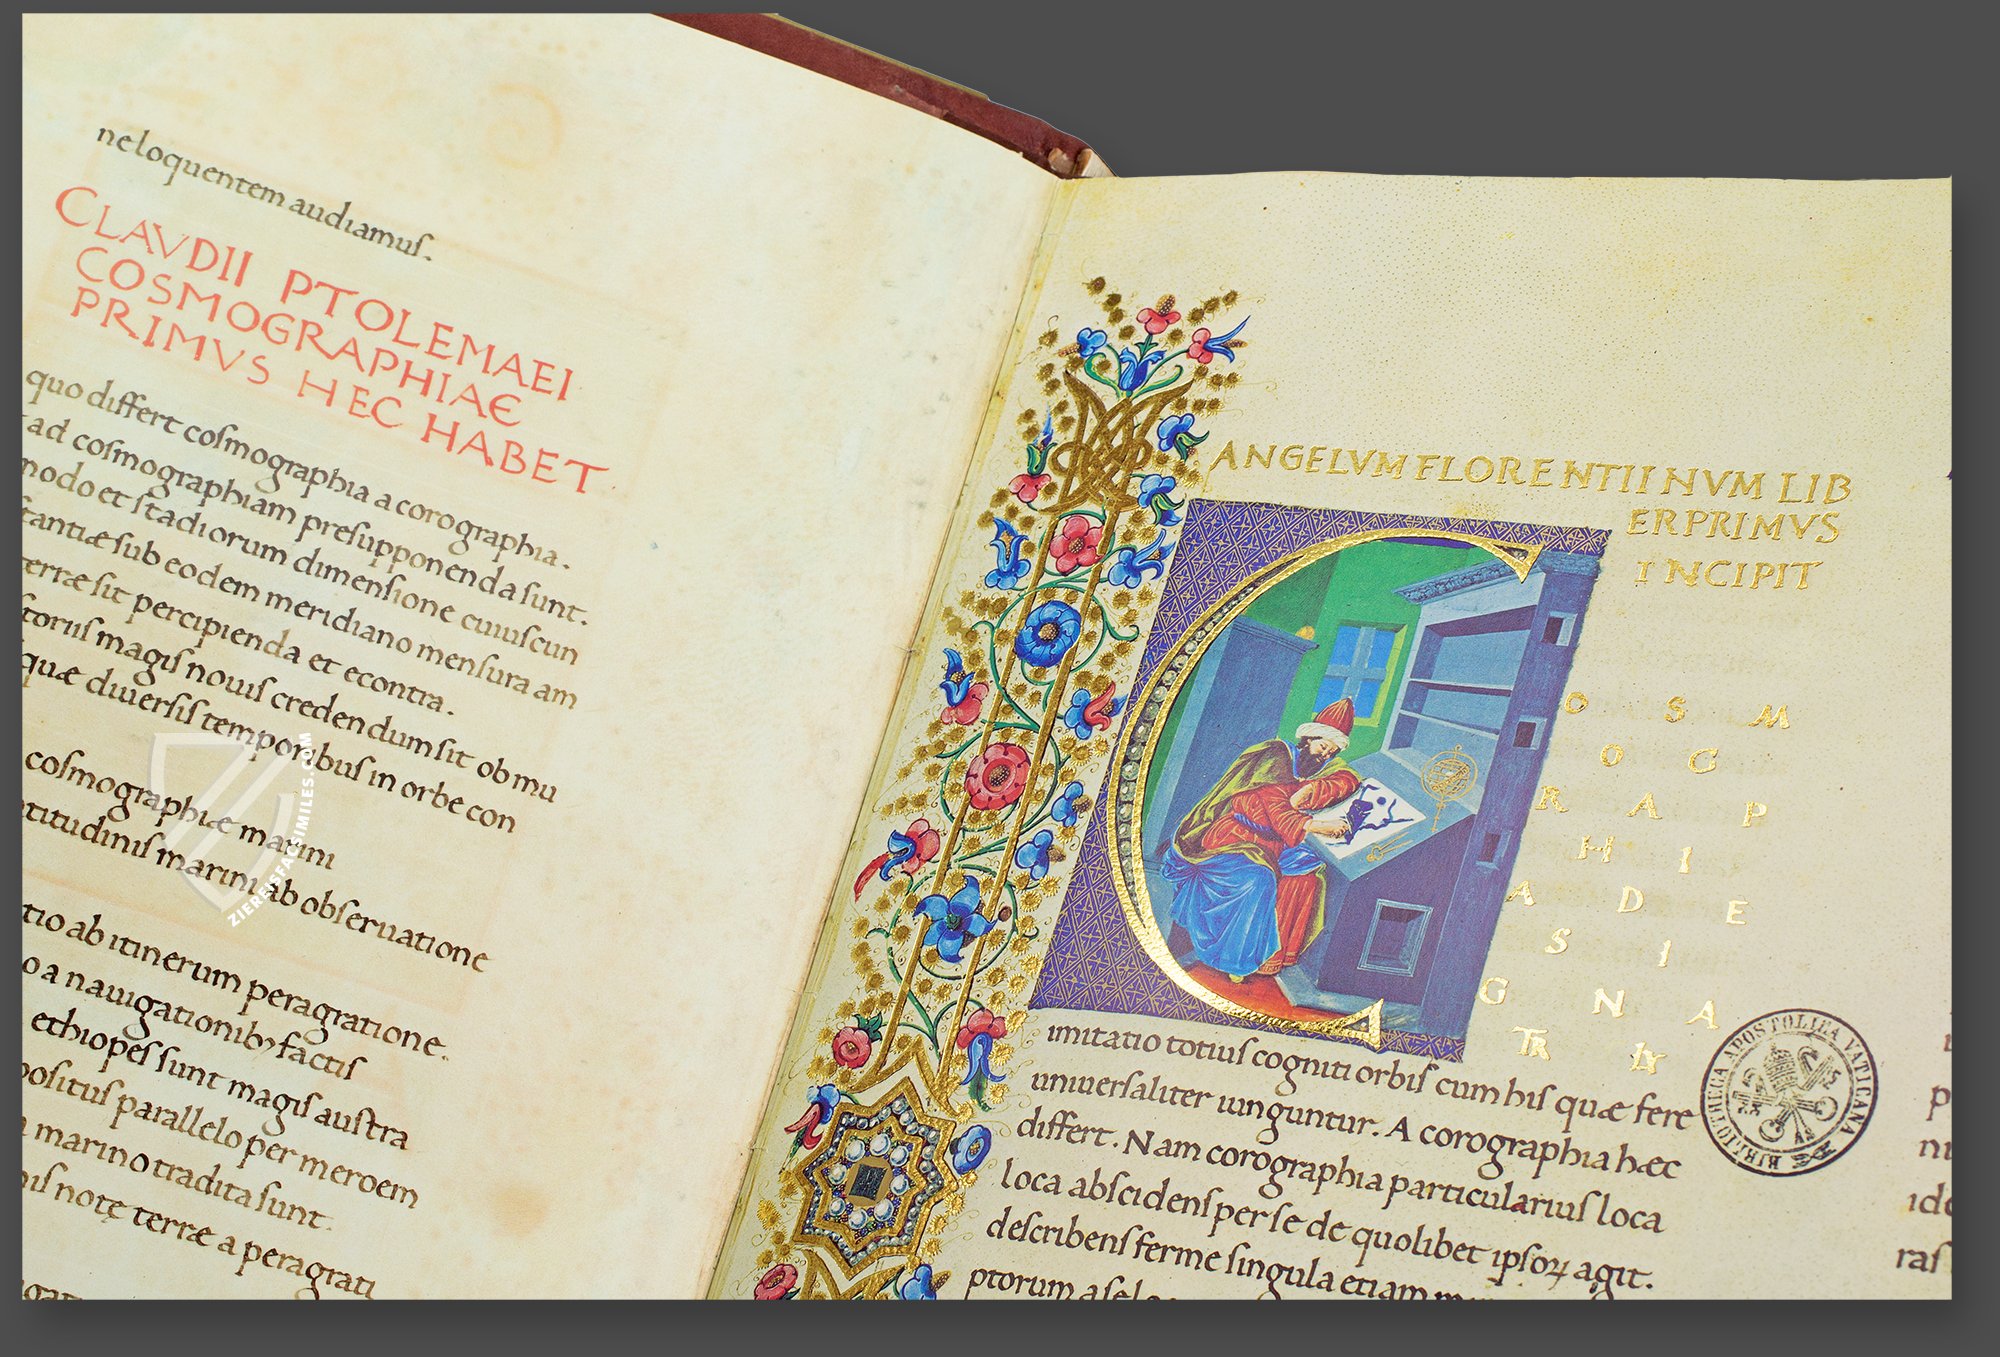 neloquentem audiamuſ.
CLAVDII PTOLEMAEI
COSMOGRAPHIAE
PRIMVS HEC HABET
quo differt coſmographia a corographia.
ad coſmographiam preſupponenda ſunt.
modo et ſtadiorum dimenſione cuiuſcun
ſtantiæ ſub eodem meridiano menſura am
terræ ſit percipienda et econtra.
ſtoriiſ magiſ nouiſ credendum ſit ob mu
quæ diuerſiſ temporibuſ in orbe con
coſmographiæ marini
titudiniſ marini ab obſeruatione
tio ab itinerum peragratione.
o a nauigationibꝫ factiſ
ethiopeſ ſunt magiſ auſtra
poſituſ parallelo per meroem
marino tradita ſunt.
niſ notę terræ a peragrati
ZIEREISFACSIMILES.COM
ANGELVM FLORENTIINVM LIB
ER PRIMVS
INCIPIT
C
O S M
O G
R A P
H I
A D E
S I
G N A
TR IX
imitatio totiuſ cogniti orbiſ cum hiſ quæ fere
uniuerſaliter iunguntur. A corographia hæc
differt. Nam corographia particulariuſ loca
loca abſcidenſ per ſe de quolibet ipſoꝝ agit.
deſcribenſ ferme ſingula etiam
ptorum
BIBLIOTHECA APOSTOLICA VATICANA